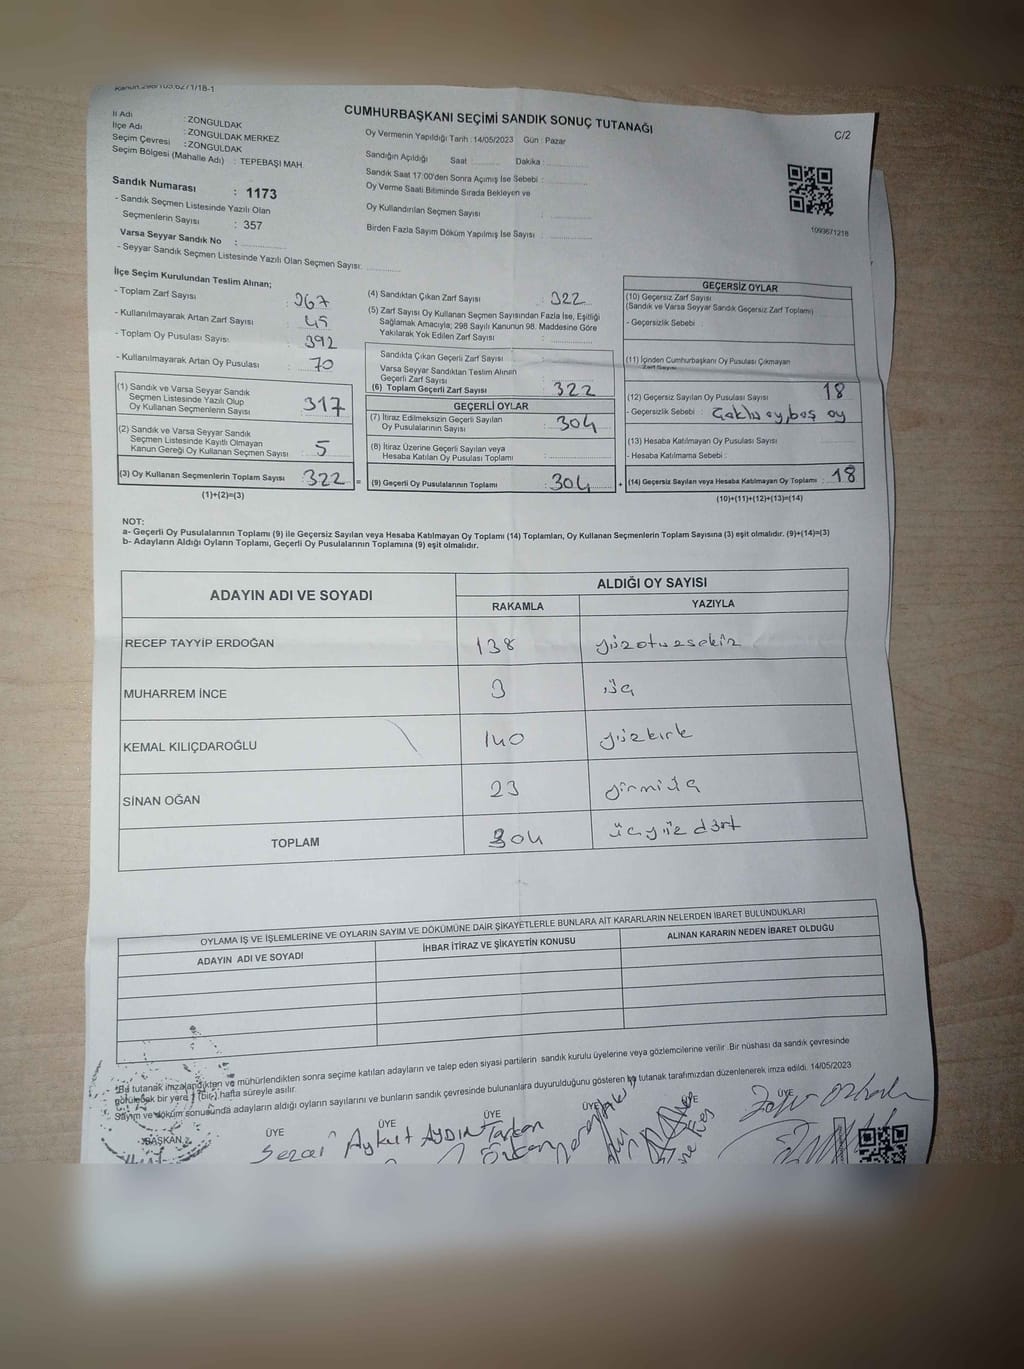 CUMHURBAŞKANI SEÇİMİ SANDIK SONUÇ TUTANAĞI
C/2
İl Adı : ZONGULDAK
İlçe Adı : ZONGULDAK MERKEZ
Seçim Çevresi : ZONGULDAK
Seçim Bölgesi (Mahalle Adı) : TEPEBAŞI MAH.
Sandık Numarası : 1173
- Sandık Seçmen Listesinde Yazılı Olan
Seçmenlerin Sayısı : 357
Varsa Seyyar Sandık No :
- Seyyar Sandık Seçmen Listesinde Yazılı Olan Seçmen Sayısı:
Oy Vermenin Yapıldığı Tarih : 14/05/2023 Gün : Pazar
Sandığın Açıldığı Saat Dakika :
Sandık Saat 17:00'den Sonra Açımış İse Sebebi :
Oy Verme Saati Bitiminde Sırada Bekleyen ve
Oy Kullandırılan Seçmen Sayısı :
Birden Fazla Sayım Döküm Yapılmış İse Sayısı :
1093671218
İlçe Seçim Kurulundan Teslim Alınan;
- Toplam Zarf Sayısı : 367
- Kullanılmayarak Artan Zarf Sayısı : 45
- Toplam Oy Pusulası Sayısı : 392
- Kullanılmayarak Artan Oy Pusulası : 70
(1) Sandık ve Varsa Seyyar Sandık
Seçmen Listesinde Yazılı Olup
Oy Kullanan Seçmenlerin Sayısı : 317
(2) Sandık ve Varsa Seyyar Sandık
Seçmen Listesinde Kayıtlı Olmayan
Kanun Gereği Oy Kullanan Seçmen Sayısı : 5
(3) Oy Kullanan Seçmenlerin Toplam Sayısı : 322 =
(1)+(2)=(3)
(4) Sandıktan Çıkan Zarf Sayısı : 322
(5) Zarf Sayısı Oy Kullanan Seçmen Sayısından Fazla İse, Eşitliği
Sağlamak Amacıyla; 298 Sayılı Kanunun 98. Maddesine Göre
Yakılarak Yok Edilen Zarf Sayısı :
Sandıkta Çıkan Geçerli Zarf Sayısı :
Varsa Seyyar Sandıktan Teslim Alınan
Geçerli Zarf Sayısı :
(6) Toplam Geçerli Zarf Sayısı : 322
GEÇERLİ OYLAR
(7) İtiraz Edilmeksizin Geçerli Sayılan
Oy Pusulalarının Sayısı : 304
(8) İtiraz Üzerine Geçerli Sayılan veya
Hesaba Katılan Oy Pusulası Toplamı :
(9) Geçerli Oy Pusulalarının Toplamı : 304 +
GEÇERSİZ OYLAR
(10) Geçersiz Zarf Sayısı
(Sandık ve Varsa Seyyar Sandık Geçersiz Zarf Toplamı)
- Geçersizlik Sebebi :
(11) İçinden Cumhurbaşkanı Oy Pusulası Çıkmayan
Zarf Sayısı
(12) Geçersiz Sayılan Oy Pusulası Sayısı : 18
- Geçersizlik Sebebi : Çoklu oy, boş oy
(13) Hesaba Katılmayan Oy Pusulası Sayısı
- Hesaba Katılmama Sebebi :
(14) Geçersiz Sayılan veya Hesaba Katılmayan Oy Toplamı : 18
(10)+(11)+(12)+(13)=(14)
NOT:
a- Geçerli Oy Pusulalarının Toplamı (9) ile Geçersiz Sayılan veya Hesaba Katılmayan Oy Toplamı (14) Toplamları, Oy Kullanan Seçmenlerin Toplam Sayısına (3) eşit olmalıdır. (9)+(14)=(3)
b- Adayların Aldığı Oyların Toplamı, Geçerli Oy Pusulalarının Toplamına (9) eşit olmalıdır.
ADAYIN ADI VE SOYADI
ALDIĞI OY SAYISI
RAKAMLA YAZIYLA
RECEP TAYYİP ERDOĞAN 138 yüzotuzsekiz
MUHARREM İNCE 3 üç
KEMAL KILIÇDAROĞLU 140 yüzkırk
SİNAN OĞAN 23 yirmiüç
TOPLAM 304 üçyüz dört
OYLAMA İŞ VE İŞLEMLERİNE VE OYLARIN SAYIM VE DÖKÜMÜNE DAİR ŞİKAYETLERLE BUNLARA AİT KARARLARIN NELERDEN İBARET BULUNDUKLARI
ADAYIN ADI VE SOYADI İHBAR İTİRAZ VE ŞİKAYETİN KONUSU ALINAN KARARIN NEDEN İBARET OLDUĞU
*Bu tutanak imzalandıkten ve mühürlendikten sonra seçime katılan adayların ve talep eden siyasi partilerin sandık kurulu üyelerine veya gözlemcilerine verilir. Bir nüshası da sandık çevresinde
görülecek bir yere 1 (bir) hafta süreyle asılır.
Sayım ve döküm sonucunda adayların aldığı oyların sayılarını ve bunların sandık çevresinde bulunanlara duyurulduğunu gösteren bu tutanak tarafımızdan düzenlenerek imza edildi. 14/05/2023
BAŞKAN ÜYE ÜYE ÜYE ÜYE ÜYE ÜYE
Sezai Aykut AYDIN Tarkan
Özcan